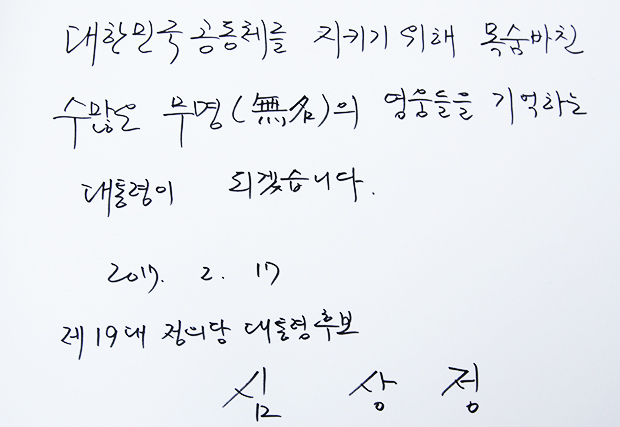 대한민국 공동체를 지키기 위해 목숨바친
수많은 무명(無名)의 영웅들을 기억하는
대통령이 되겠습니다.
2017. 2. 17
제19대 정의당 대통령후보
심 상 정